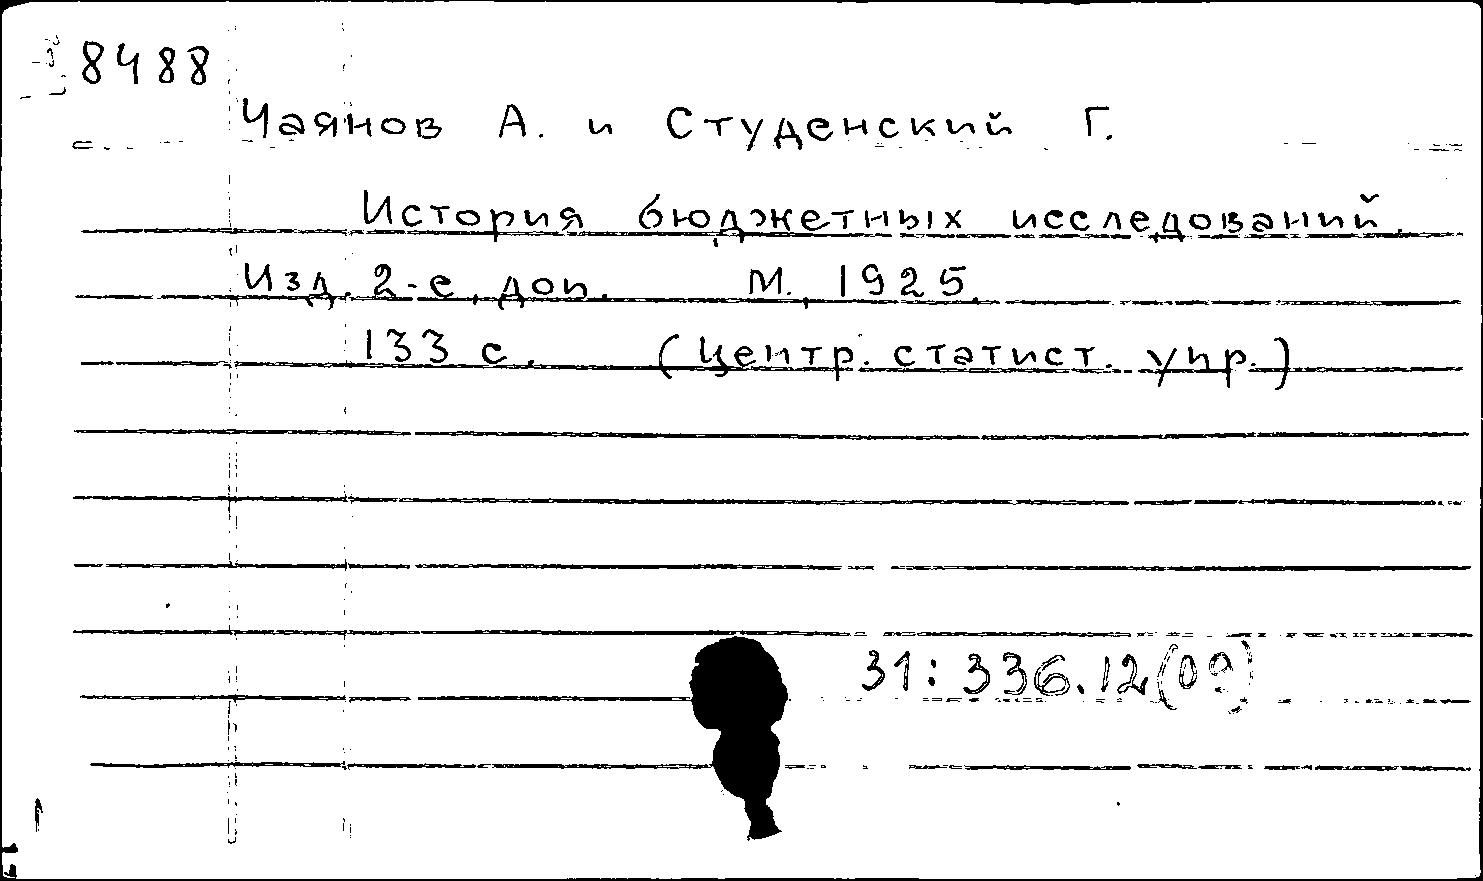 8488
Чаянов А. и Студенский Г.
История бюджетных исследований.
Изд. 2-е, доп. М., 1925.
133 с. (Центр. статист. упр.)
31: 336.12(09)